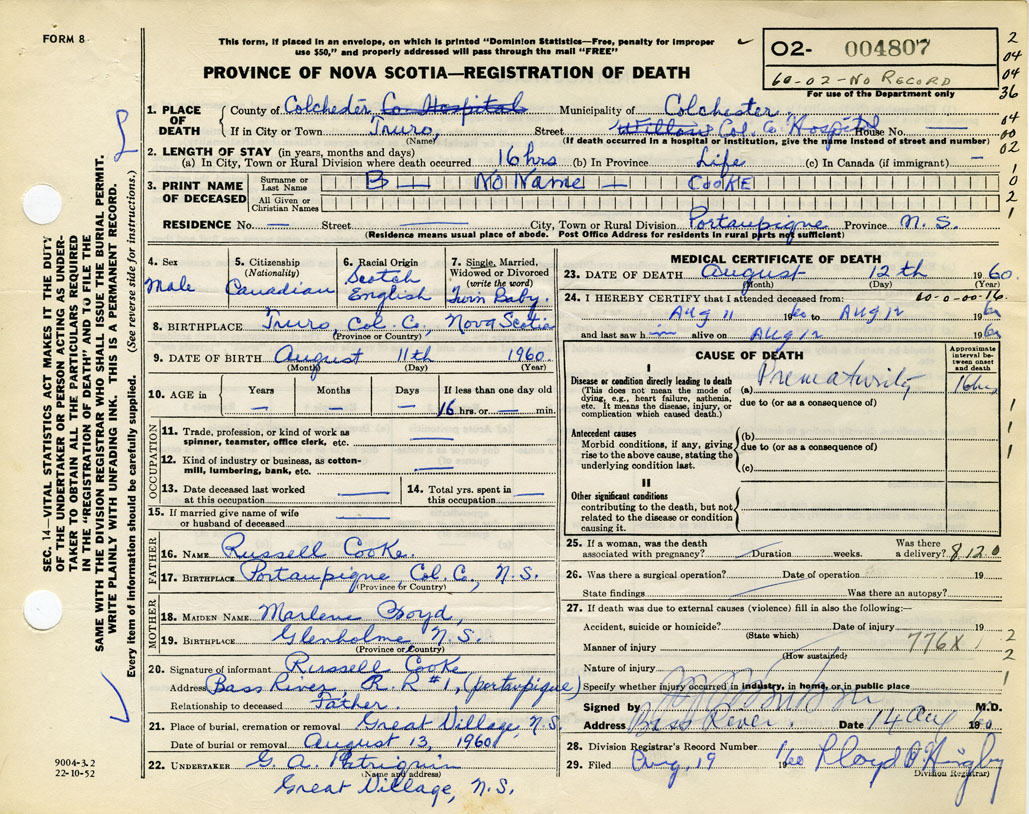 FORM 8
This form, if placed in an envelope, on which is printed "Dominion Statistics—Free, penalty for improper
use $50," and properly addressed will pass through the mail "FREE"
PROVINCE OF NOVA SCOTIA—REGISTRATION OF DEATH
02- 004807
60-02-No Record
For use of the Department only
2
04
04
36
04
00
02
1
0
2
1
1. PLACE OF DEATH
County of Colchester Co. Hospital Municipality of Colchester
If in City or Town Truro, Street Willow Col. Co. Hospital House No. —
(Name) (If death occurred in a hospital or institution, give the name instead of street and number)
2. LENGTH OF STAY (in years, months and days)
(a) In City, Town or Rural Division where death occurred 16 hrs (b) In Province Life (c) In Canada (if immigrant) —
3. PRINT NAME OF DECEASED
Surname or Last Name B — No Name — COOKE
All Given or Christian Names
RESIDENCE No. — Street — City, Town or Rural Division Portaupique Province N.S.
(Residence means usual place of abode. Post Office Address for residents in rural parts not sufficient)
4. Sex
Male
5. Citizenship
(Nationality)
Canadian
6. Racial Origin
Scotch
English
7. Single, Married,
Widowed or Divorced
(write the word)
Twin Baby.
8. BIRTHPLACE Truro, Col. Co., Nova Scotia
(Province or Country)
9. DATE OF BIRTH August 11th 1960
(Month) (Day) (Year)
10. AGE in
Years —
Months —
Days —
If less than one day old
16 hrs. or — min.
OCCUPATION
11. Trade, profession, or kind of work as
spinner, teamster, office clerk, etc. —
12. Kind of industry or business, as cotton-
mill, lumbering, bank, etc. —
13. Date deceased last worked
at this occupation —
14. Total yrs. spent in
this occupation —
15. If married give name of wife
or husband of deceased —
FATHER
16. NAME Russell Cooke.
17. BIRTHPLACE Portaupique, Col. Co., N.S.
(Province or Country)
MOTHER
18. MAIDEN NAME Marlene Boyd,
19. BIRTHPLACE Glenholme, N.S.
(Province or Country)
20. Signature of informant Russell Cooke
Address Bass River, R.R #1, (Portaupique)
Relationship to deceased Father.
21. Place of burial, cremation or removal Great Village, N.S.
Date of burial or removal August 13, 1960
22. UNDERTAKER G. A. Patriquin
(Name and address)
Great Village, N.S.
MEDICAL CERTIFICATE OF DEATH
23. DATE OF DEATH August 12th 1960.
(Month) (Day) (Year)
60-0-00-16
24. I HEREBY CERTIFY that I attended deceased from:
Aug 11 1960 to Aug 12 1960
and last saw him alive on Aug 12 1960
CAUSE OF DEATH
Approximate
interval be-
tween onset
and death
I
Disease or condition directly leading to death
(This does not mean the mode of
dying, e.g., heart failure, asthenia,
etc. It means the disease, injury, or
complication which caused death.)
(a) Prematurity 16 hrs
due to (or as a consequence of)
Antecedent causes
Morbid conditions, if any, giving
rise to the above cause, stating the
underlying condition last.
(b)
due to (or as a consequence of)
(c)
II
Other significant conditions
contributing to the death, but not
related to the disease or condition
causing it.
1
1
1
25. If a woman, was the death
associated with pregnancy? Duration weeks.
Was there
a delivery? 8120
26. Was there a surgical operation? Date of operation 19
State findings Was there an autopsy?
27. If death was due to external causes (violence) fill in also the following:—
Accident, suicide or homicide? Date of injury 19
(State which)
Manner of injury 776X
(How sustained)
Nature of injury
Specify whether injury occurred in industry, in home, or in public place
2
1
2
1
Signed by M.D.
Address Bass River. Date 14 Aug 1960
28. Division Registrar's Record Number
29. Filed Aug. 19 1960 Lloyd
Division Registrar)
SEC. 14—VITAL STATISTICS ACT MAKES IT THE DUTY
OF THE UNDERTAKER OR PERSON ACTING AS UNDER-
TAKER TO OBTAIN ALL THE PARTICULARS REQUIRED
IN THE "REGISTRATION OF DEATH" AND TO FILE THE
SAME WITH THE DIVISION REGISTRAR WHO SHALL ISSUE THE BURIAL PERMIT.
WRITE PLAINLY WITH UNFADING INK. THIS IS A PERMANENT RECORD.
Every item of information should be carefully supplied. (See reverse side for instructions.)
9004-3.2
22-10-52